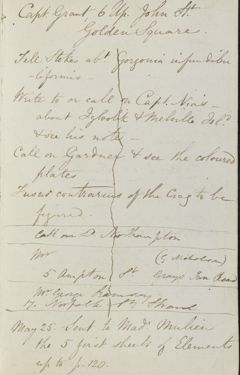 Capt. Grant 6 Up. John St.
Golden Square.
Tell Stokes abt. Gorgonia infundibu
-liformis -
Write to or call on Capt.
about & Melville Isd.
& see his note -
Call on Gardner & see the coloured
plates
Fusus contrarius of the Crag to be
figured.
Call on Ld Northampton
Mr (G Nicholson)
5 Ampton St Grays Inn Road
Mr George
17. Norfolk St. Strand
May 25. Sent to Madm.
the 5 first sheets of Elements
up to p. 120.